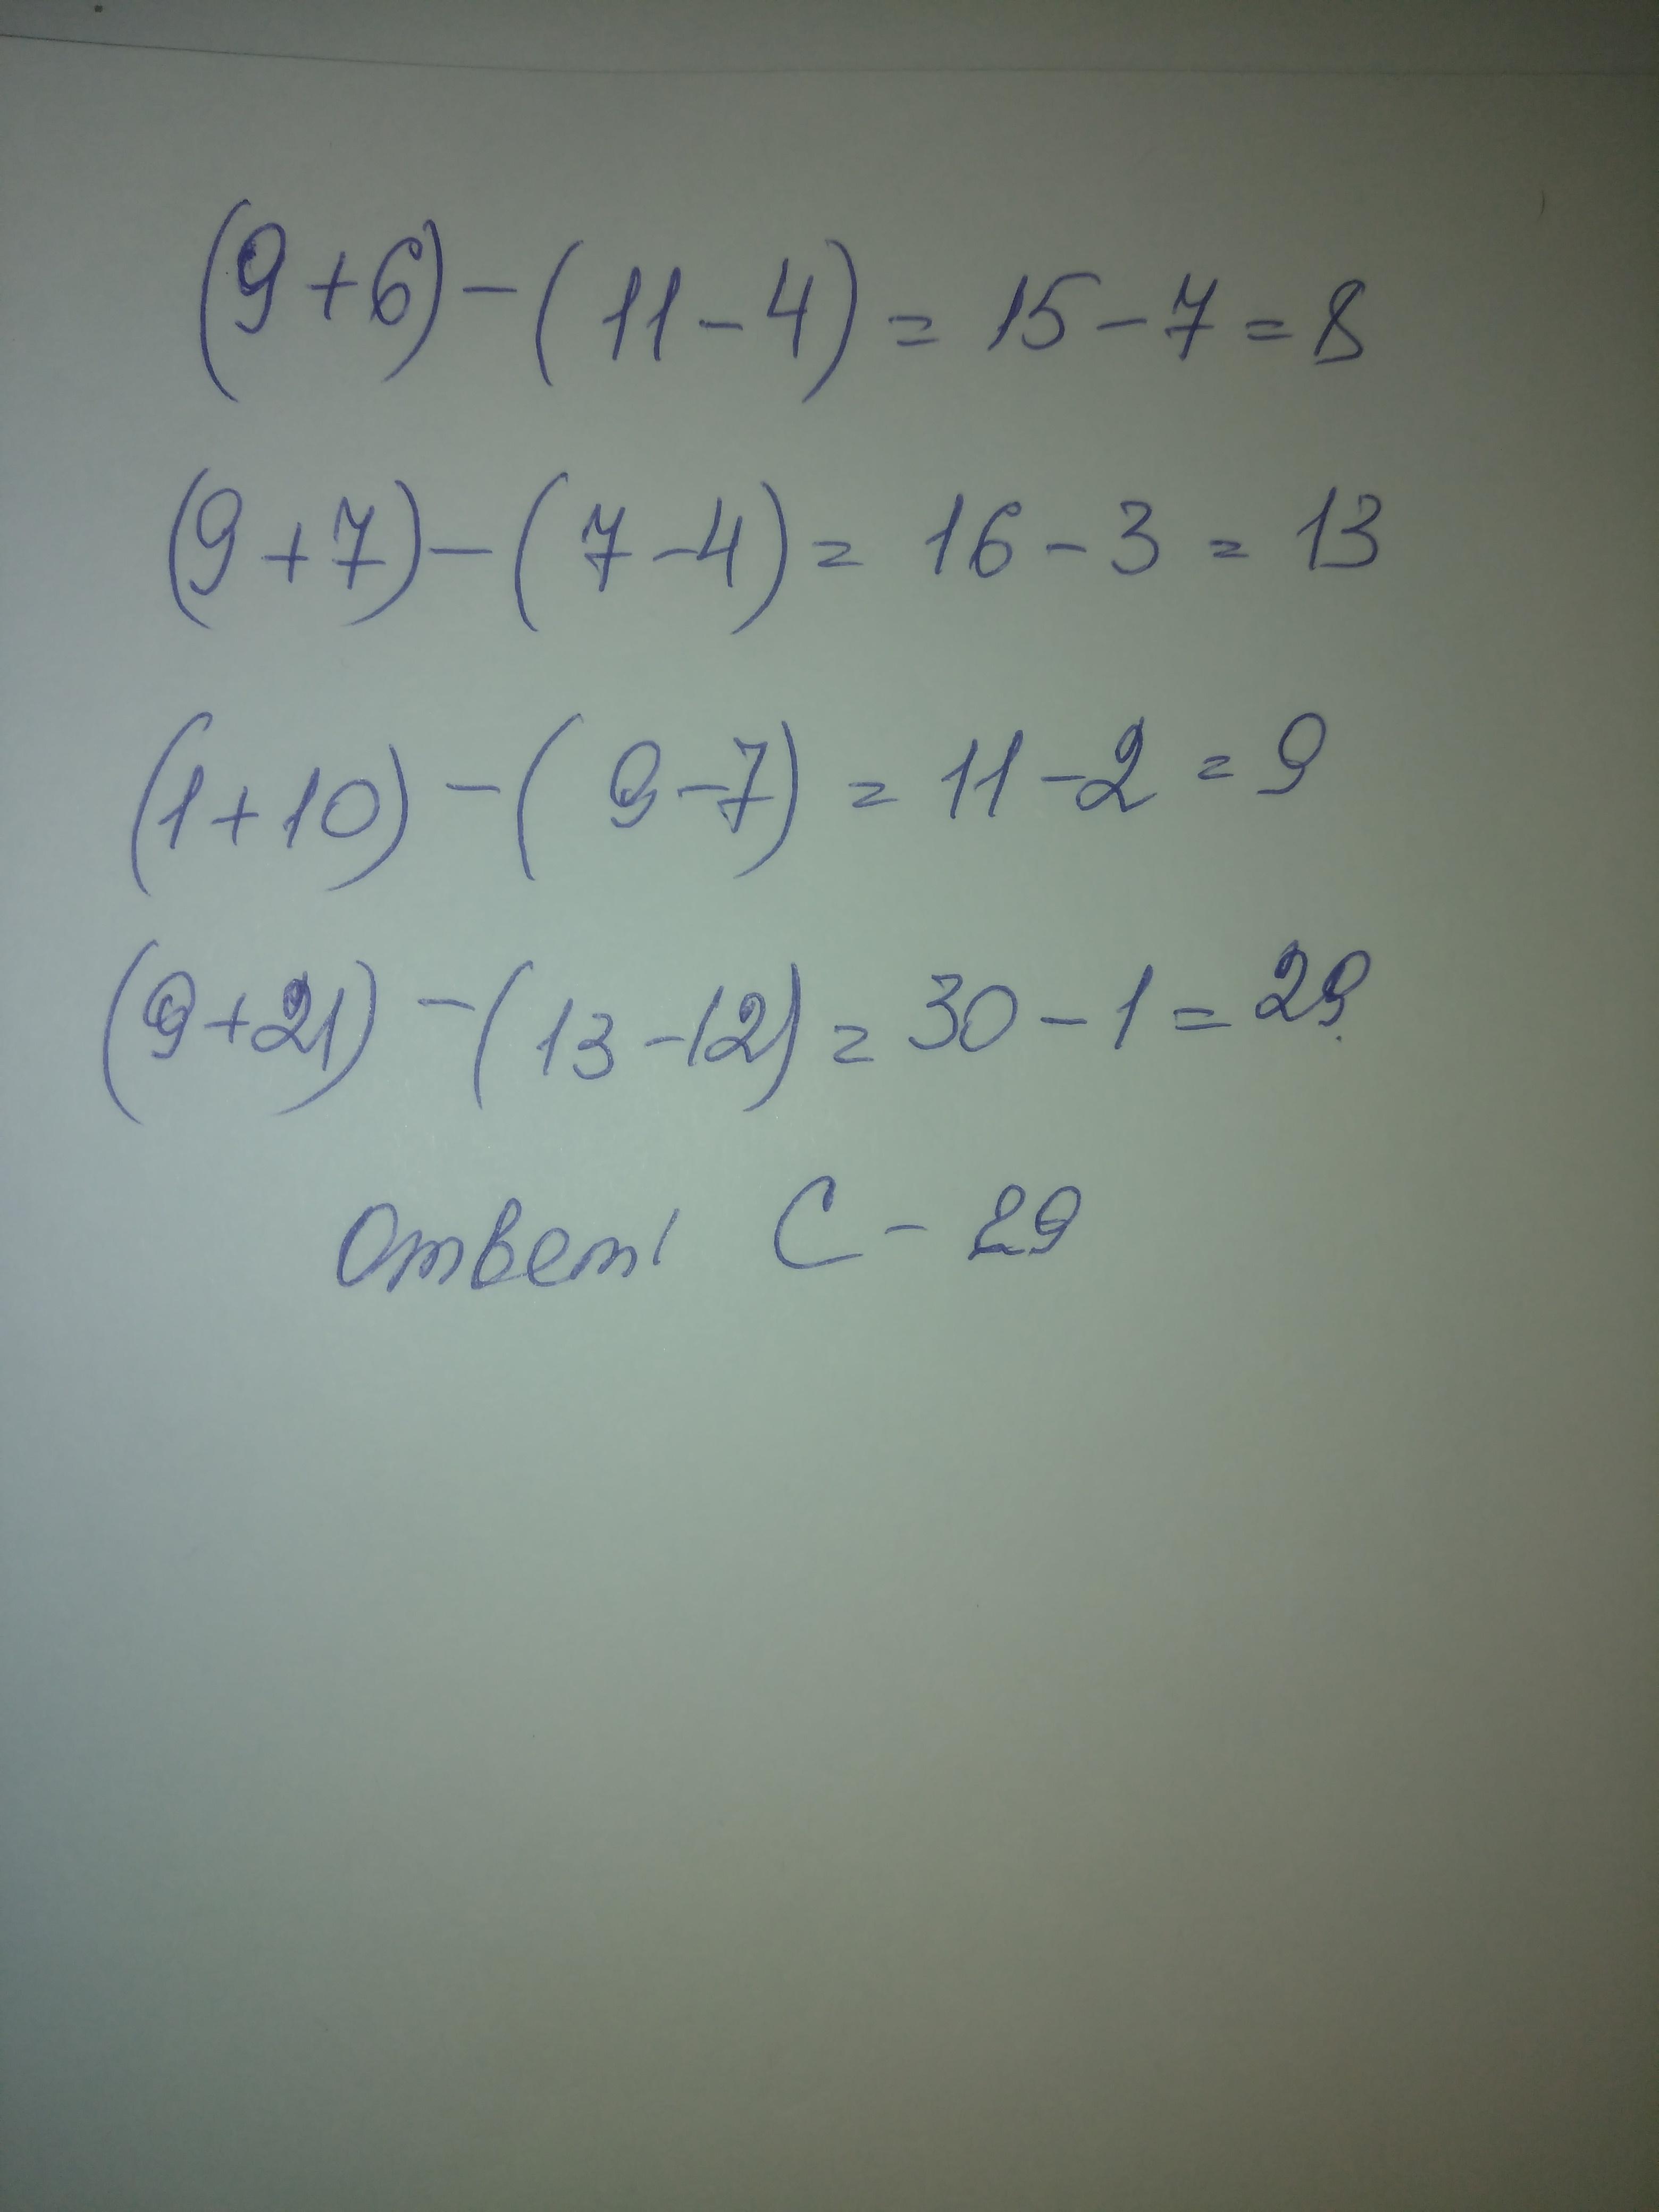 (9+6)-(11-4)=15-7=8
(9+7)-(7-4)=16-3=13
(1+10)-(9-7)=11-2=9
(9+21)-(13-12)=30-1=29.
Ответ: С-29